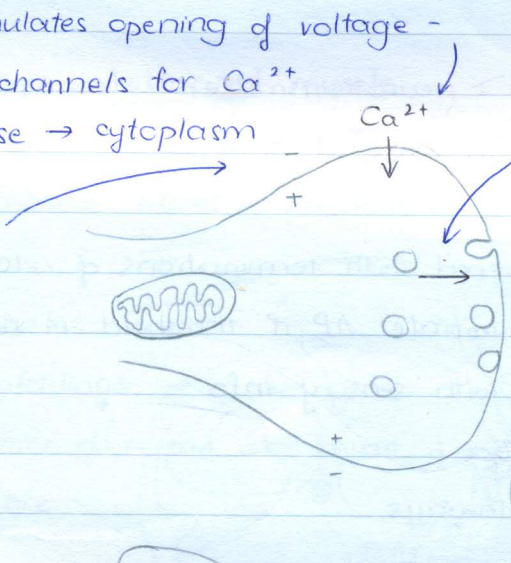 ulates opening of voltage -
channels for Ca²⁺
se → cytoplasm
Ca²⁺
−
+
+
−